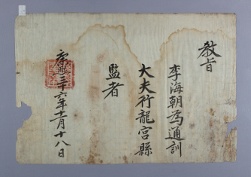 教旨
李海朝為通訓
大夫行龍宮縣
監者
康熙三十六年十一月十八日